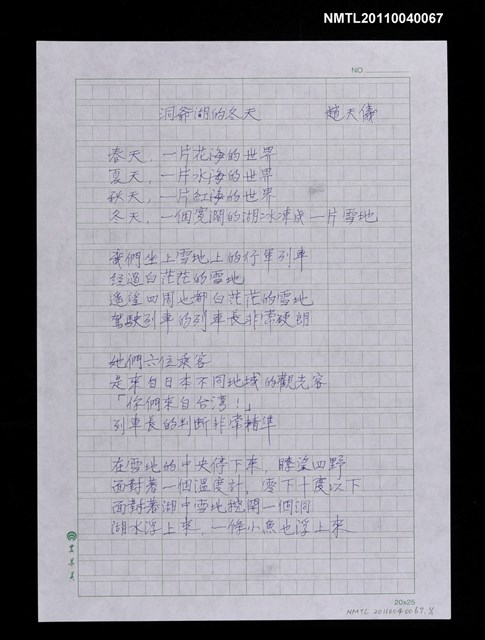 NMTL20110040067
NO
洞爺湖的冬天 趙天儀
春天，一片花海的世界
夏天，一片冰海的世界
秋天，一片紅海的世界
冬天，一個寬闊的湖冰凍成一片雪地
我們坐上雪地上的行軍列車
經過白茫茫的雪地
遙望四周也都白茫茫的雪地
駕駛列車的列車長非常硬朗
她們六位乘客
是來自日本不同地域的觀光客
「你們來自台灣！」
列車長的判斷非常精準
在雪地的中央停下來，瞭望四野
面對著一個溫度計，零下十度以下
面對著湖中雪地挖開一個洞
湖水浮上來，一條小魚也浮上來
20x25